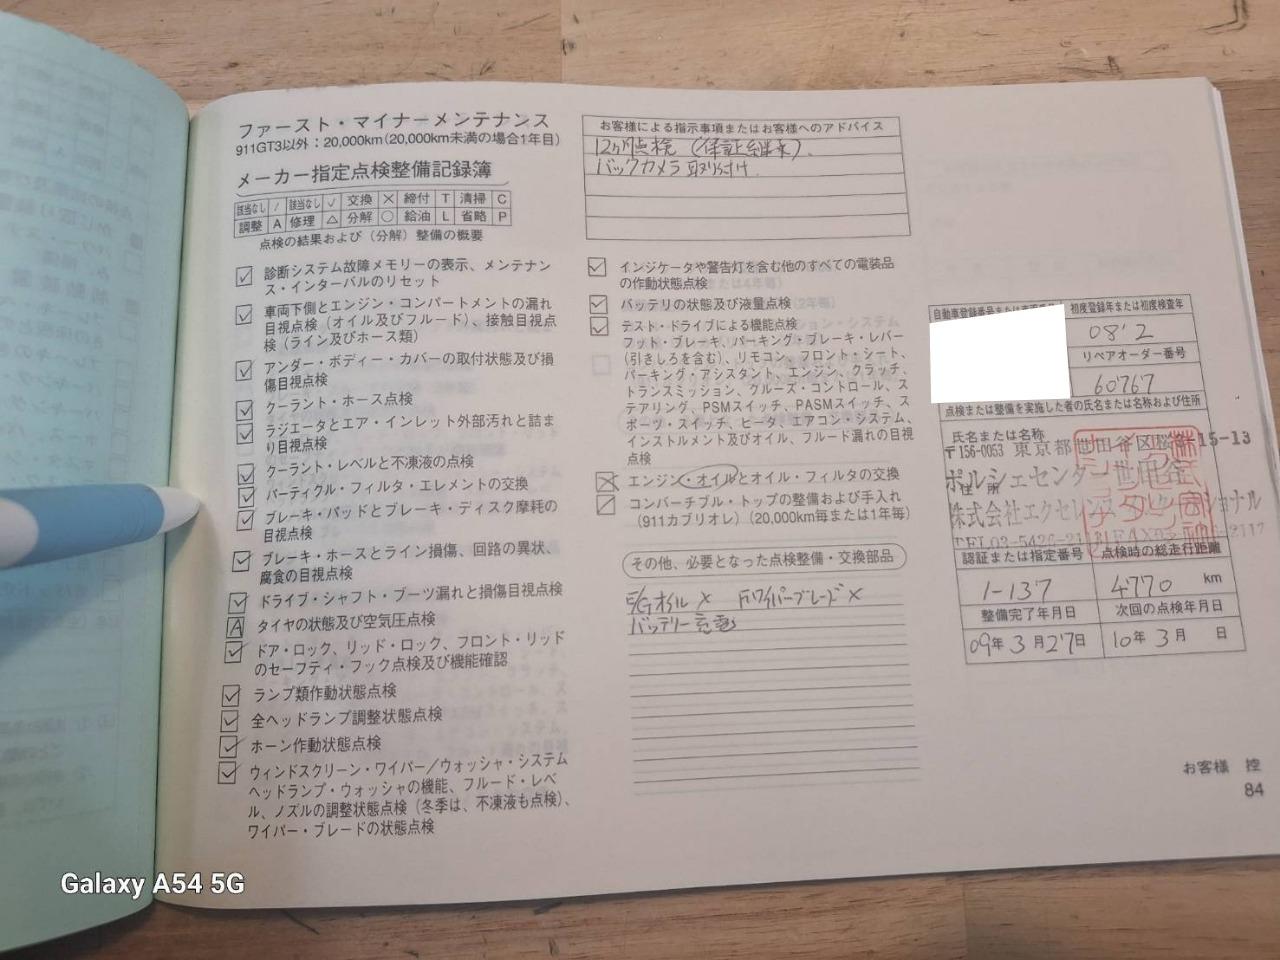 ファースト・マイナーメンテナンス
911GT3以外：20,000km(20,000km未満の場合1年目)
メーカー指定点検整備記録簿
該当なし / 該当なし ✓ 交換 × 締付 T 清掃 C
調整 A 修理 △ 分解 ○ 給油 L 省略 P
点検の結果および（分解）整備の概要
診断システム故障メモリーの表示、メンテナン
ス・インターバルのリセット
車両下側とエンジン・コンパートメントの漏れ
目視点検（オイル及びフルード）、接触目視点
検（ライン及びホース類）
アンダー・ボディー・カバーの取付状態及び損
傷目視点検
クーラント・ホース点検
ラジエータとエア・インレット外部汚れと詰ま
り目視点検
クーラント・レベルと不凍液の点検
パーティクル・フィルタ・エレメントの交換
ブレーキ・パッドとブレーキ・ディスク摩耗の
目視点検
ブレーキ・ホースとライン損傷、回路の異状、
腐食の目視点検
ドライブ・シャフト・ブーツ漏れと損傷目視点検
A タイヤの状態及び空気圧点検
ドア・ロック、リッド・ロック、フロント・リッド
のセーフティ・フック点検及び機能確認
ランプ類作動状態点検
全ヘッドランプ調整状態点検
ホーン作動状態点検
ウィンドスクリーン・ワイパー／ウォッシャ・システム
ヘッドランプ・ウォッシャの機能、フルード・レベ
ル、ノズルの調整状態点検（冬季は、不凍液も点検）、
ワイパー・ブレードの状態点検
お客様による指示事項またはお客様へのアドバイス
12ヶ月点検（保証継続）、
バックカメラ取り付け
インジケータや警告灯を含む他のすべての電装品
の作動状態点検
バッテリの状態及び液量点検
テスト・ドライブによる機能点検
フット・ブレーキ、パーキング・ブレーキ・レバー
(引きしろを含む)、リモコン、フロント・シート、
パーキング・アシスタント、エンジン、クラッチ、
トランスミッション、クルーズ・コントロール、ス
テアリング、PSMスイッチ、PASMスイッチ、ス
ポーツ・スイッチ、ヒータ、エアコン・システム、
インストルメント及びオイル、フルード漏れの目視
点検
エンジン・オイルとオイル・フィルタの交換
コンバーチブル・トップの整備および手入れ
（911カブリオレ）(20,000km毎または1年毎)
その他、必要となった点検整備・交換部品
E/Gオイル × Fワイパーブレード ×
バッテリー充電
自動車登録番号または
初度登録年または初度検査年
08' 2
リペアオーダー番号
60767
点検または整備を実施した者の氏名または名称および住所
氏名または名称
〒156-0053 東京都世田谷区桜 15-13
ポルシェセンター世田谷
住所
株式会社エクセレンス ショナル
TEL03-5426-21
認証または指定番号 点検時の総走行距離
1-137 4770 km
整備完了年月日 次回の点検年月日
09年 3月27日 10年 3月 日
お客様 控
84
Galaxy A54 5G